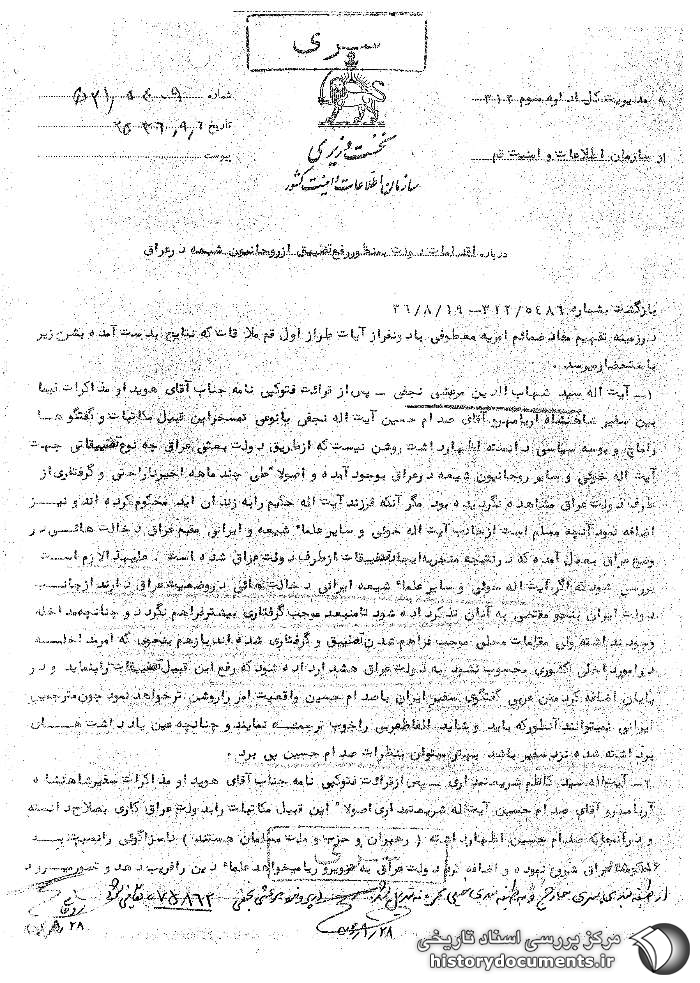 سری
نخست وزیری
سازمان اطلاعات و امنیت کشور
شماره
تاریخ
پیوست
به مدیریت کل اداره سوم ۳۱۲
از سازمان اطلاعات و امنیت قم
درباره اقدامات دولت بمنظور رفع تضییق از روحانیون شیعه در عراق
بازگشت بشماره ۳۱۲/۵۴۸۶ – ۳۶/۸/۱۹
در زمینه تفهیم مفاد ضمائم امریه معطوفی با دو نفر از آیات طراز اول قم ملاقات که نتایج بدست آمده بشرح زیر
باستحضار میرسد .
۱ـ آیت اله سید شهاب الدین مرعشی نجفی ـ پس از قرائت فتوکپی نامه جناب آقای هویدا و مذاکرات فیما
بین سفیر شاهنشاه آریامهر و آقای صدام حسین آیت اله نجفی با نوعی تمسخر این قبیل مکاتبات و گفتگوها
را سیاسی دانسته اظهار داشت روشن نیست که از طریق دولت بعثی عراق چه نوع تضییقاتی جهت
آیت اله خوئی و سایر روحانیون شیعه در عراق بوجود آمده و اصولا طی چند ماهه اخیر ناراحتی و گرفتاری از
طرف دولت عراق مشاهده نگردیده بود مگر آنکه فرزند آیت اله حکیم را به زندان ابد محکوم کرده اند و نیز
اضافه نمود آنچه مسلم است از جانب آیت اله خوئی و سایر علماء شیعه و ایرانی مقیم عراق دخالت هائی در
وضع عراق بعمل آمده که در نتیجه منجر به ایجاد تضییقات از طرف دولت عراق شده است . علیهذا لازم است
بررسی شود که اگر آیت اله خوئی و سایر علماء شیعه ایرانی دخالت هائی در وضعیت عراق دارند از جانب
دولت ایران بنحو مقتضی به آنان تذکر داده شود تا من بعد موجب گرفتاری بیشتر فراهم نگردد و چنانچه مداخله
وجود نداشته ولی مقامات محلی موجب فراهم شدن تضییق و گرفتاری شده اند باز هم بنحوی که امر مداخله
در امور داخلی کشوری محسوب نشود به دولت عراق هشدار داده شود که رفع این قبیل تضییقات را بنماید و در
پایان اضافه کرد متن عربی گفتگوی سفیر ایران با صدام حسین واقعیت امر را روشن تر خواهد نمود چون مترجمین
ایرانی نمیتوانند آنطور که باید و شاید الفاظ عربی را خوب ترجمه نمایند و چنانچه عین یادداشت های
برداشته شده نزد سفیر باشد بهتر میتوان بنظرات صدام حسین پی برد .
۲ـ آیت اله سید کاظم شریعتمداری ـ پس از قرائت فتوکپی نامه جناب آقای هویدا و مذاکرات سفیر شاهنشاه
آریامهر و آقای صدام حسین آیت اله شریعتمداری اصولا این قبیل مکاتبات را بدولت عراق کاری بصلاح دانسته
و در آنجا که صدام حسین اظهار داشته ( رهبران و حزب و ملت مسلمان هستند ) ناسزا گوئی را نسبت به
حکومت عراق شروع نموده و اضافه نمود دولت عراق به هر وریا میخواهد علماء دین را فریب دهد و تصور میرود
مرکز بررسی اسناد تاریخی
historydocuments.ir